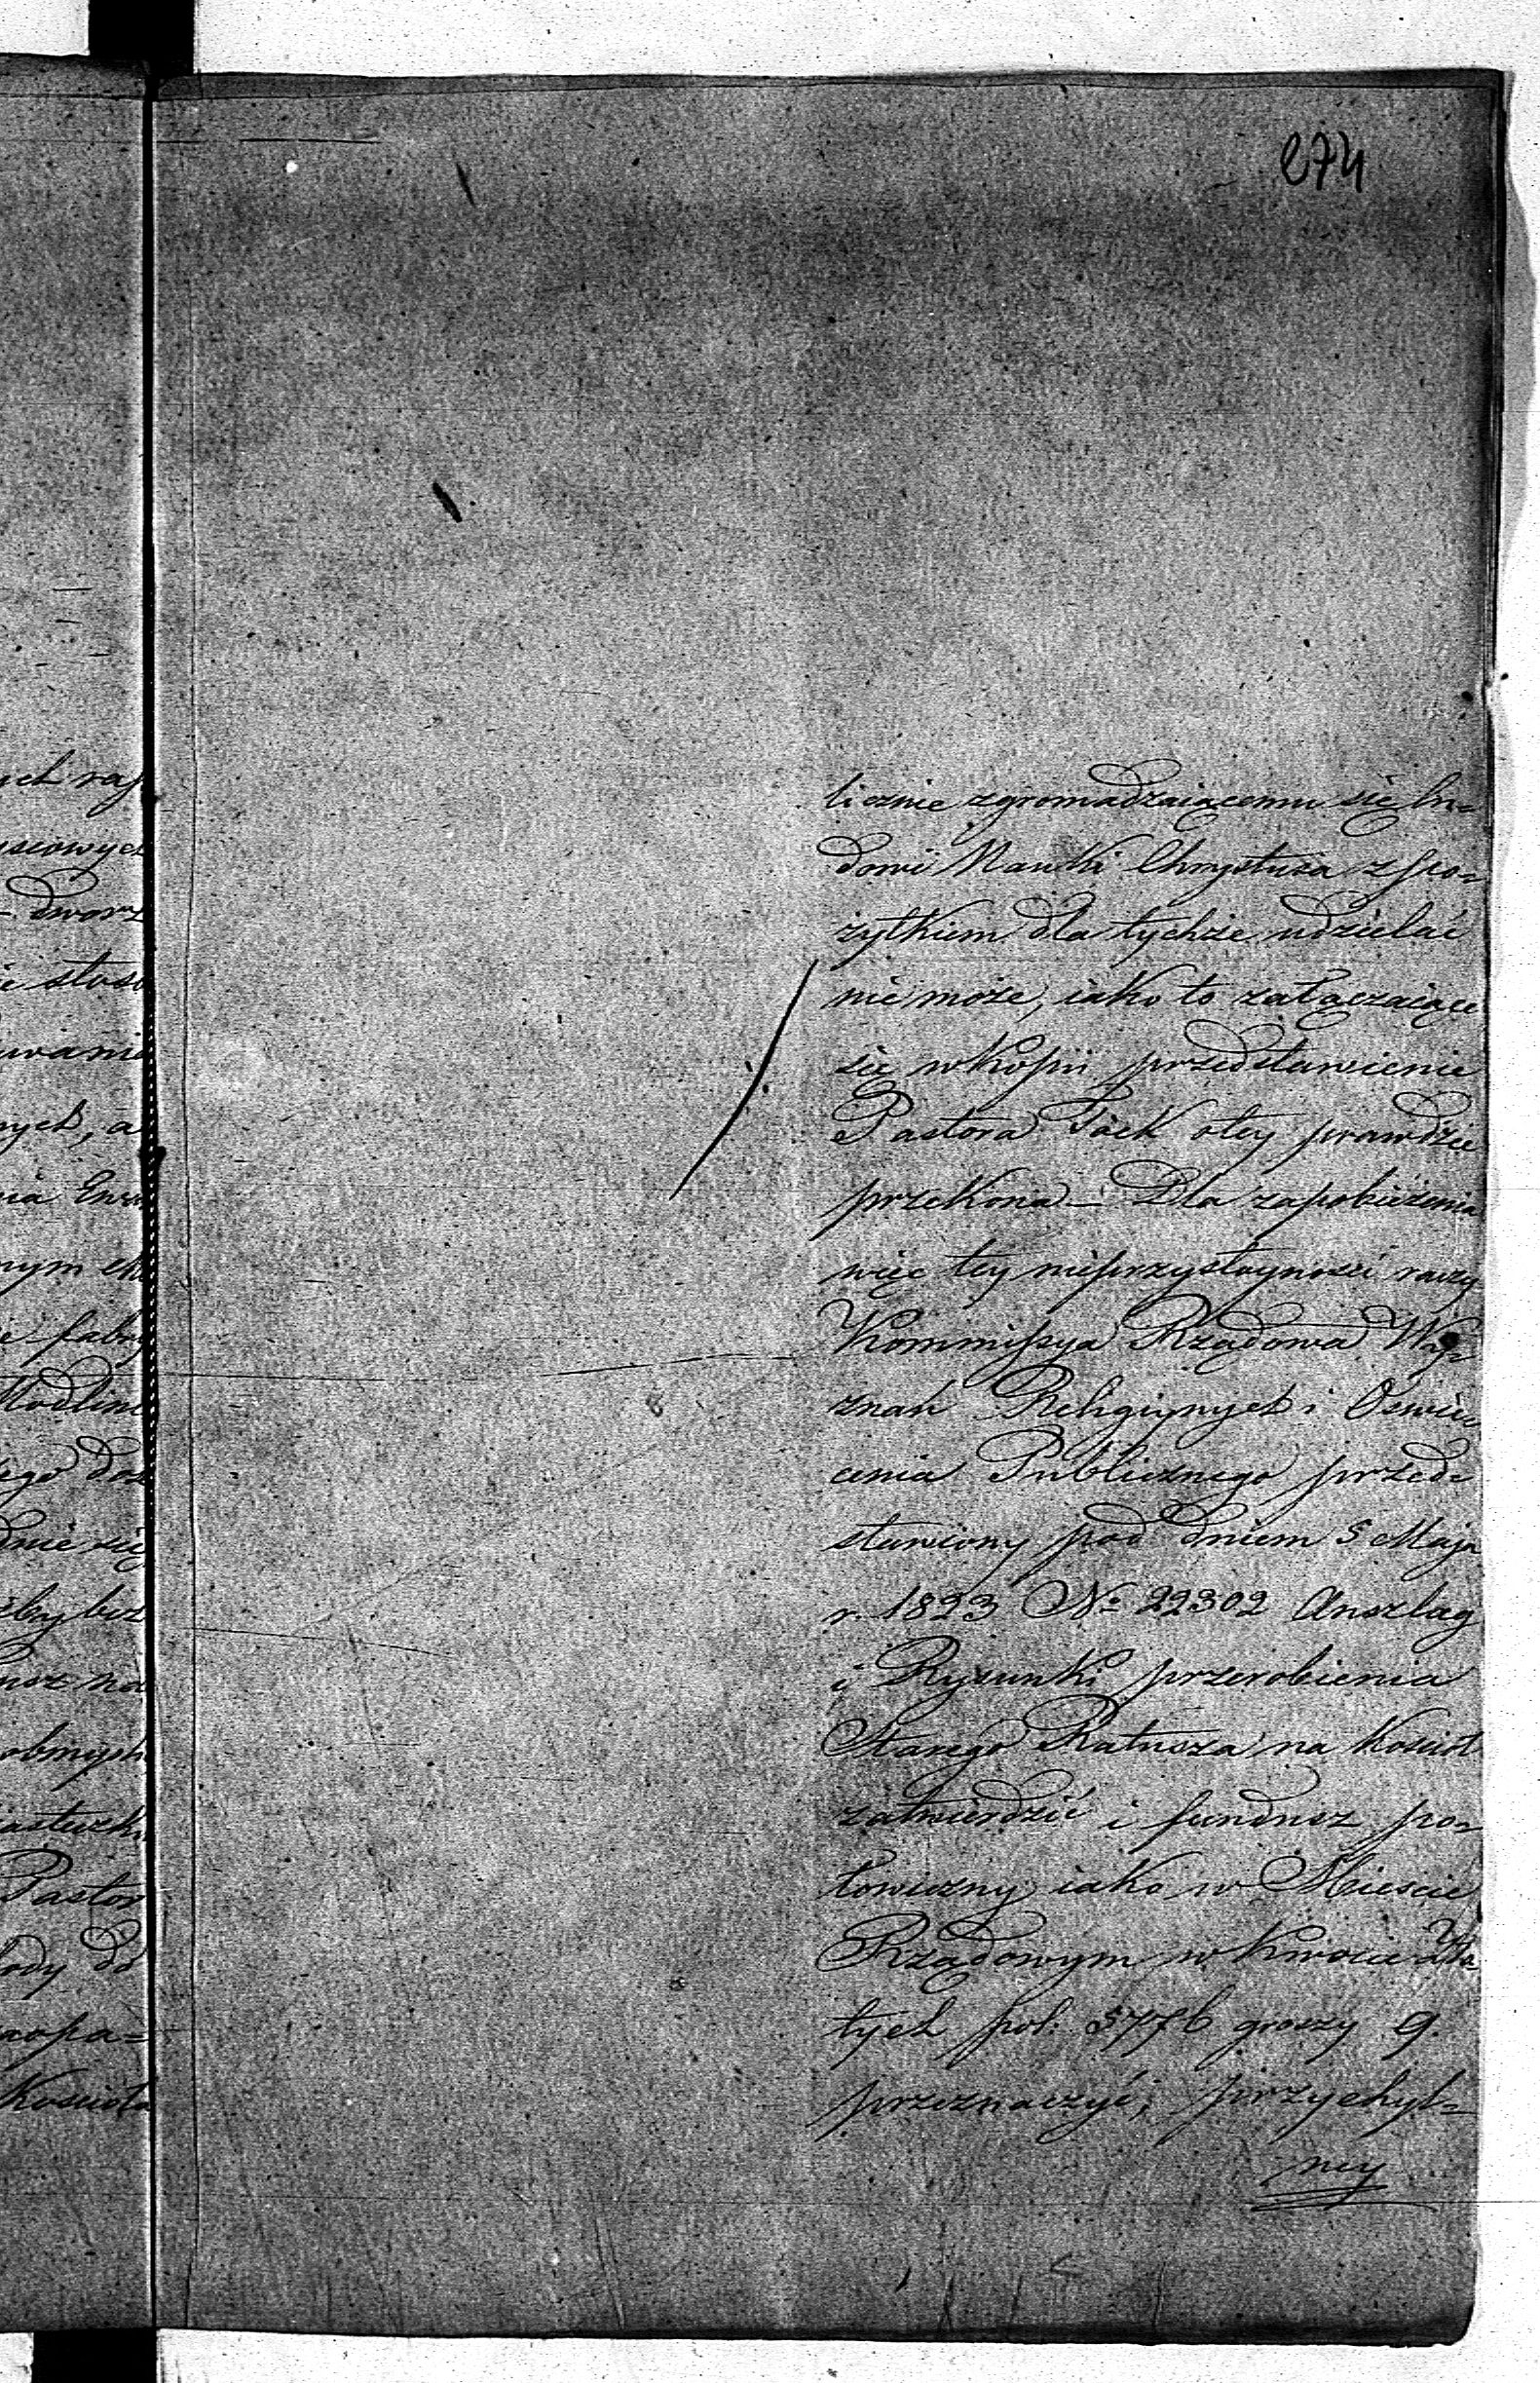 274
ych rap
dworz
nych, a
nym
Modlin
ego
dnie się
usz na
Pastor
ody do
Kościoła
licznie zgromadzaiącemu się lu=
dowi Nauki Chrystusa z spo=
żytkiem dla tychże udzielać
nie może, iako to załączaiące
się w kopii przedstawienie
Pastora Töck o tey prawdzie
przekona – Dla zapobieżenia
więc tey nieprzystoyności raczy
Kommissya Rządowa Wy=
znań Religiynych i Oświe=
cenia Publicznego przed=
stawiony pod dniem 5 Maja
r. 1823 No 22302 Anszlag
i Rysunki przerobienia
Starego Ratusza na Kościoł
zatwierdzić i fundusz po=
łowiczny iako w Mieście
Rządowym w kwocie Zło
tych pol: 5776 groszy 9.
przeznaczyć; przychyl=
ney